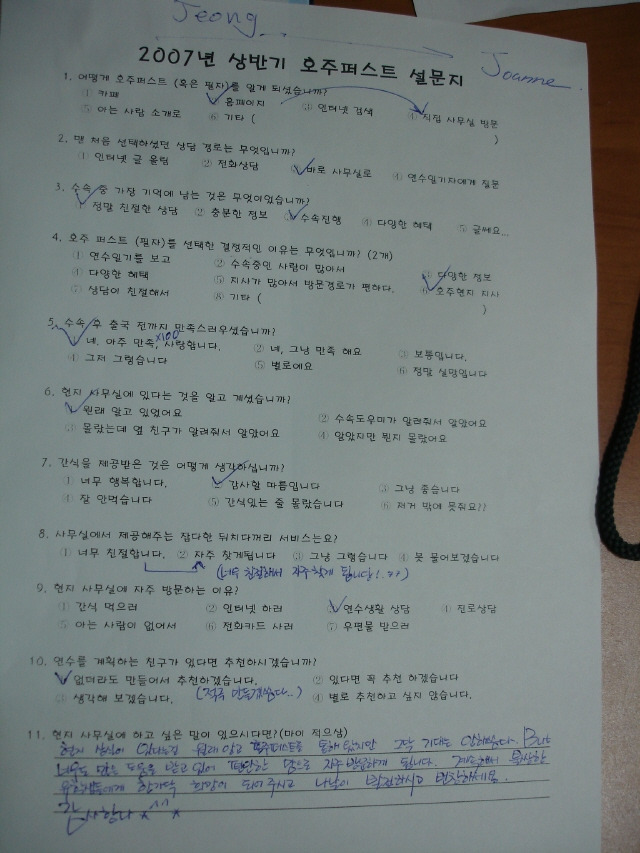 Jeong
Joanne
2007년 상반기 호주퍼스트 설문지
1. 어떻게 호주퍼스트 (혹은 필자)를 알게 되셨습니까?
① 카페 ② 홈페이지 ③ 인터넷 검색 ④ 직접 사무실 방문
⑤ 아는 사람 소개로 ⑥ 기타 ( )
2. 맨 처음 선택하셨던 상담 경로는 무엇입니까?
① 인터넷 글 올림 ② 전화상담 ③ 바로 사무실로 ④ 연수일기자에게 질문
3. 수속 중 가장 기억에 남는 것은 무엇이었습니까?
① 정말 친절한 상담 ② 충분한 정보 ③ 수속진행 ④ 다양한 혜택 ⑤ 글쎄요...
4. 호주 퍼스트 (필자)를 선택한 결정적인 이유는 무엇입니까? (2개)
① 연수일기를 보고 ② 수속중인 사람이 많아서 ③ 다양한 정보
④ 다양한 혜택 ⑤ 지사가 많아서 방문경로가 편하다. ⑥ 호주현지 지사
⑦ 상담이 친절해서 ⑧ 기타 ( )
5. 수속 후 출국 전까지 만족스러우셨습니까?
① 네. 아주 만족, 사랑합니다. ② 네, 그냥 만족 해요 ③ 보통입니다.
x100
④ 그저 그렇습니다 ⑤ 별로에요 ⑥ 정말 실망입니다
6. 현지 사무실에 있다는 것을 알고 계셨습니까?
① 원래 알고 있었어요 ② 수속도우미가 알려줘서 알았어요
③ 몰랐는데 옆 친구가 알려줘서 알았어요 ④ 알았지만 뭔지 몰랐어요
7. 간식을 제공받은 것은 어떻게 생각하십니까?
① 너무 행복합니다. ② 감사할 따름입니다 ③ 그냥 좋습니다
④ 잘 안먹습니다 ⑤ 간식있는 줄 몰랐습니다 ⑥ 저거 밖에 못줘요??
8. 사무실에서 제공해주는 잡다한 뒤치다꺼리 서비스는요?
① 너무 친절합니다. ② 자주 찾게됩니다 ③ 그냥 그렇습니다 ④ 못 물어보겠습니다
(너무 친절해서 자주 찾게 됩니다!.??)
9. 현지 사무실에 자주 방문하는 이유?
① 간식 먹으러 ② 인터넷 하러 ③ 연수생활 상담 ④ 진로상담
⑤ 아는 사람이 없어서 ⑥ 전화카드 사러 ⑦ 우편물 받으러
10. 연수를 계획하는 친구가 있다면 추천하시겠습니까?
① 없더라도 만들어서 추천하겠습니다. ② 있다면 꼭 추천 하겠습니다
③ 생각해 보겠습니다. ④ 별로 추천하고 싶지 않습니다.
11. 현지 사무실에 하고 싶은 말이 있으시다면?(마이 적으삼)
현지 있다는걸 원래 알고 호주퍼스트를 통해 왔지만 그닥 기대는 안하였다. But
너무도 많은 도움을 받고 있어 편안한 맘으로 자주 방문하게 됩니다. 계속해서 불쌍한
유학생들에게 한가닥 희망이 되어 주시고 나날이 발전하시고 번창하세요.
감사합니다 *^^*